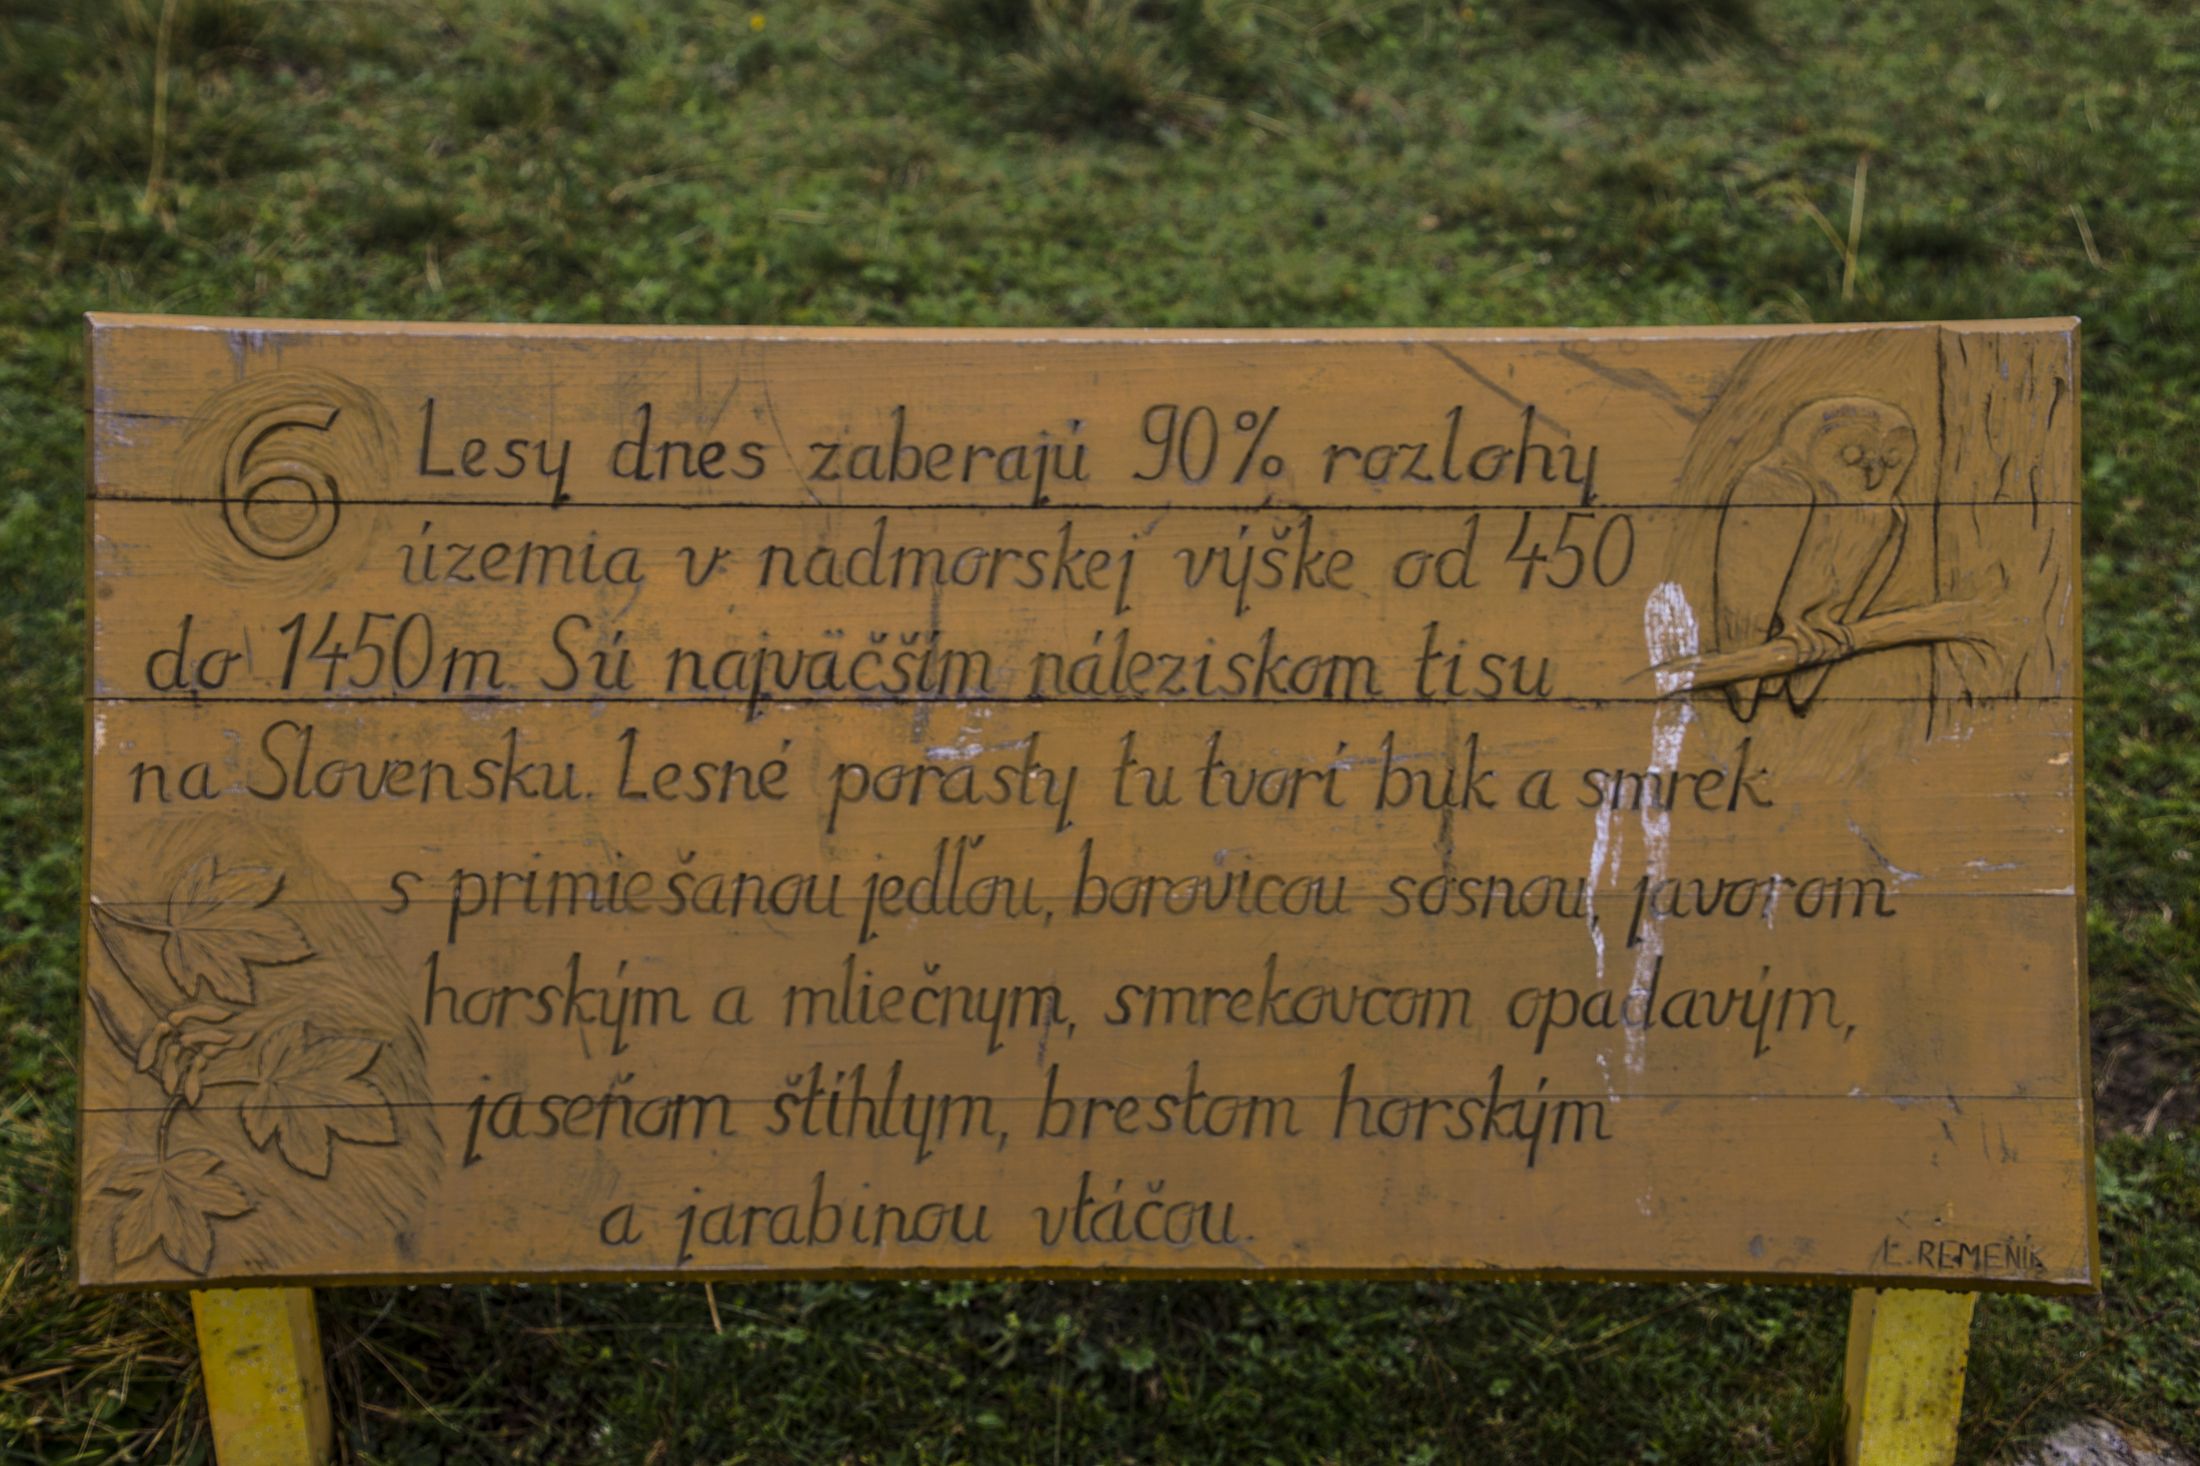 6 Lesy dnes zaberajú 90% rozlohy
územia v nadmorskej výške od 450
do 1450m. Sú najväčším náleziskom tisu
na Slovensku. Lesné porasty tu tvorí buk a smrek
s primiešanou jedľou, borovicou sosnou, javorom
horským a mliečnym, smrekovcom opadavým,
jaseňom štíhlym, brestom horským
a jarabinou vtáčou.
Ľ. REMEŇÍK